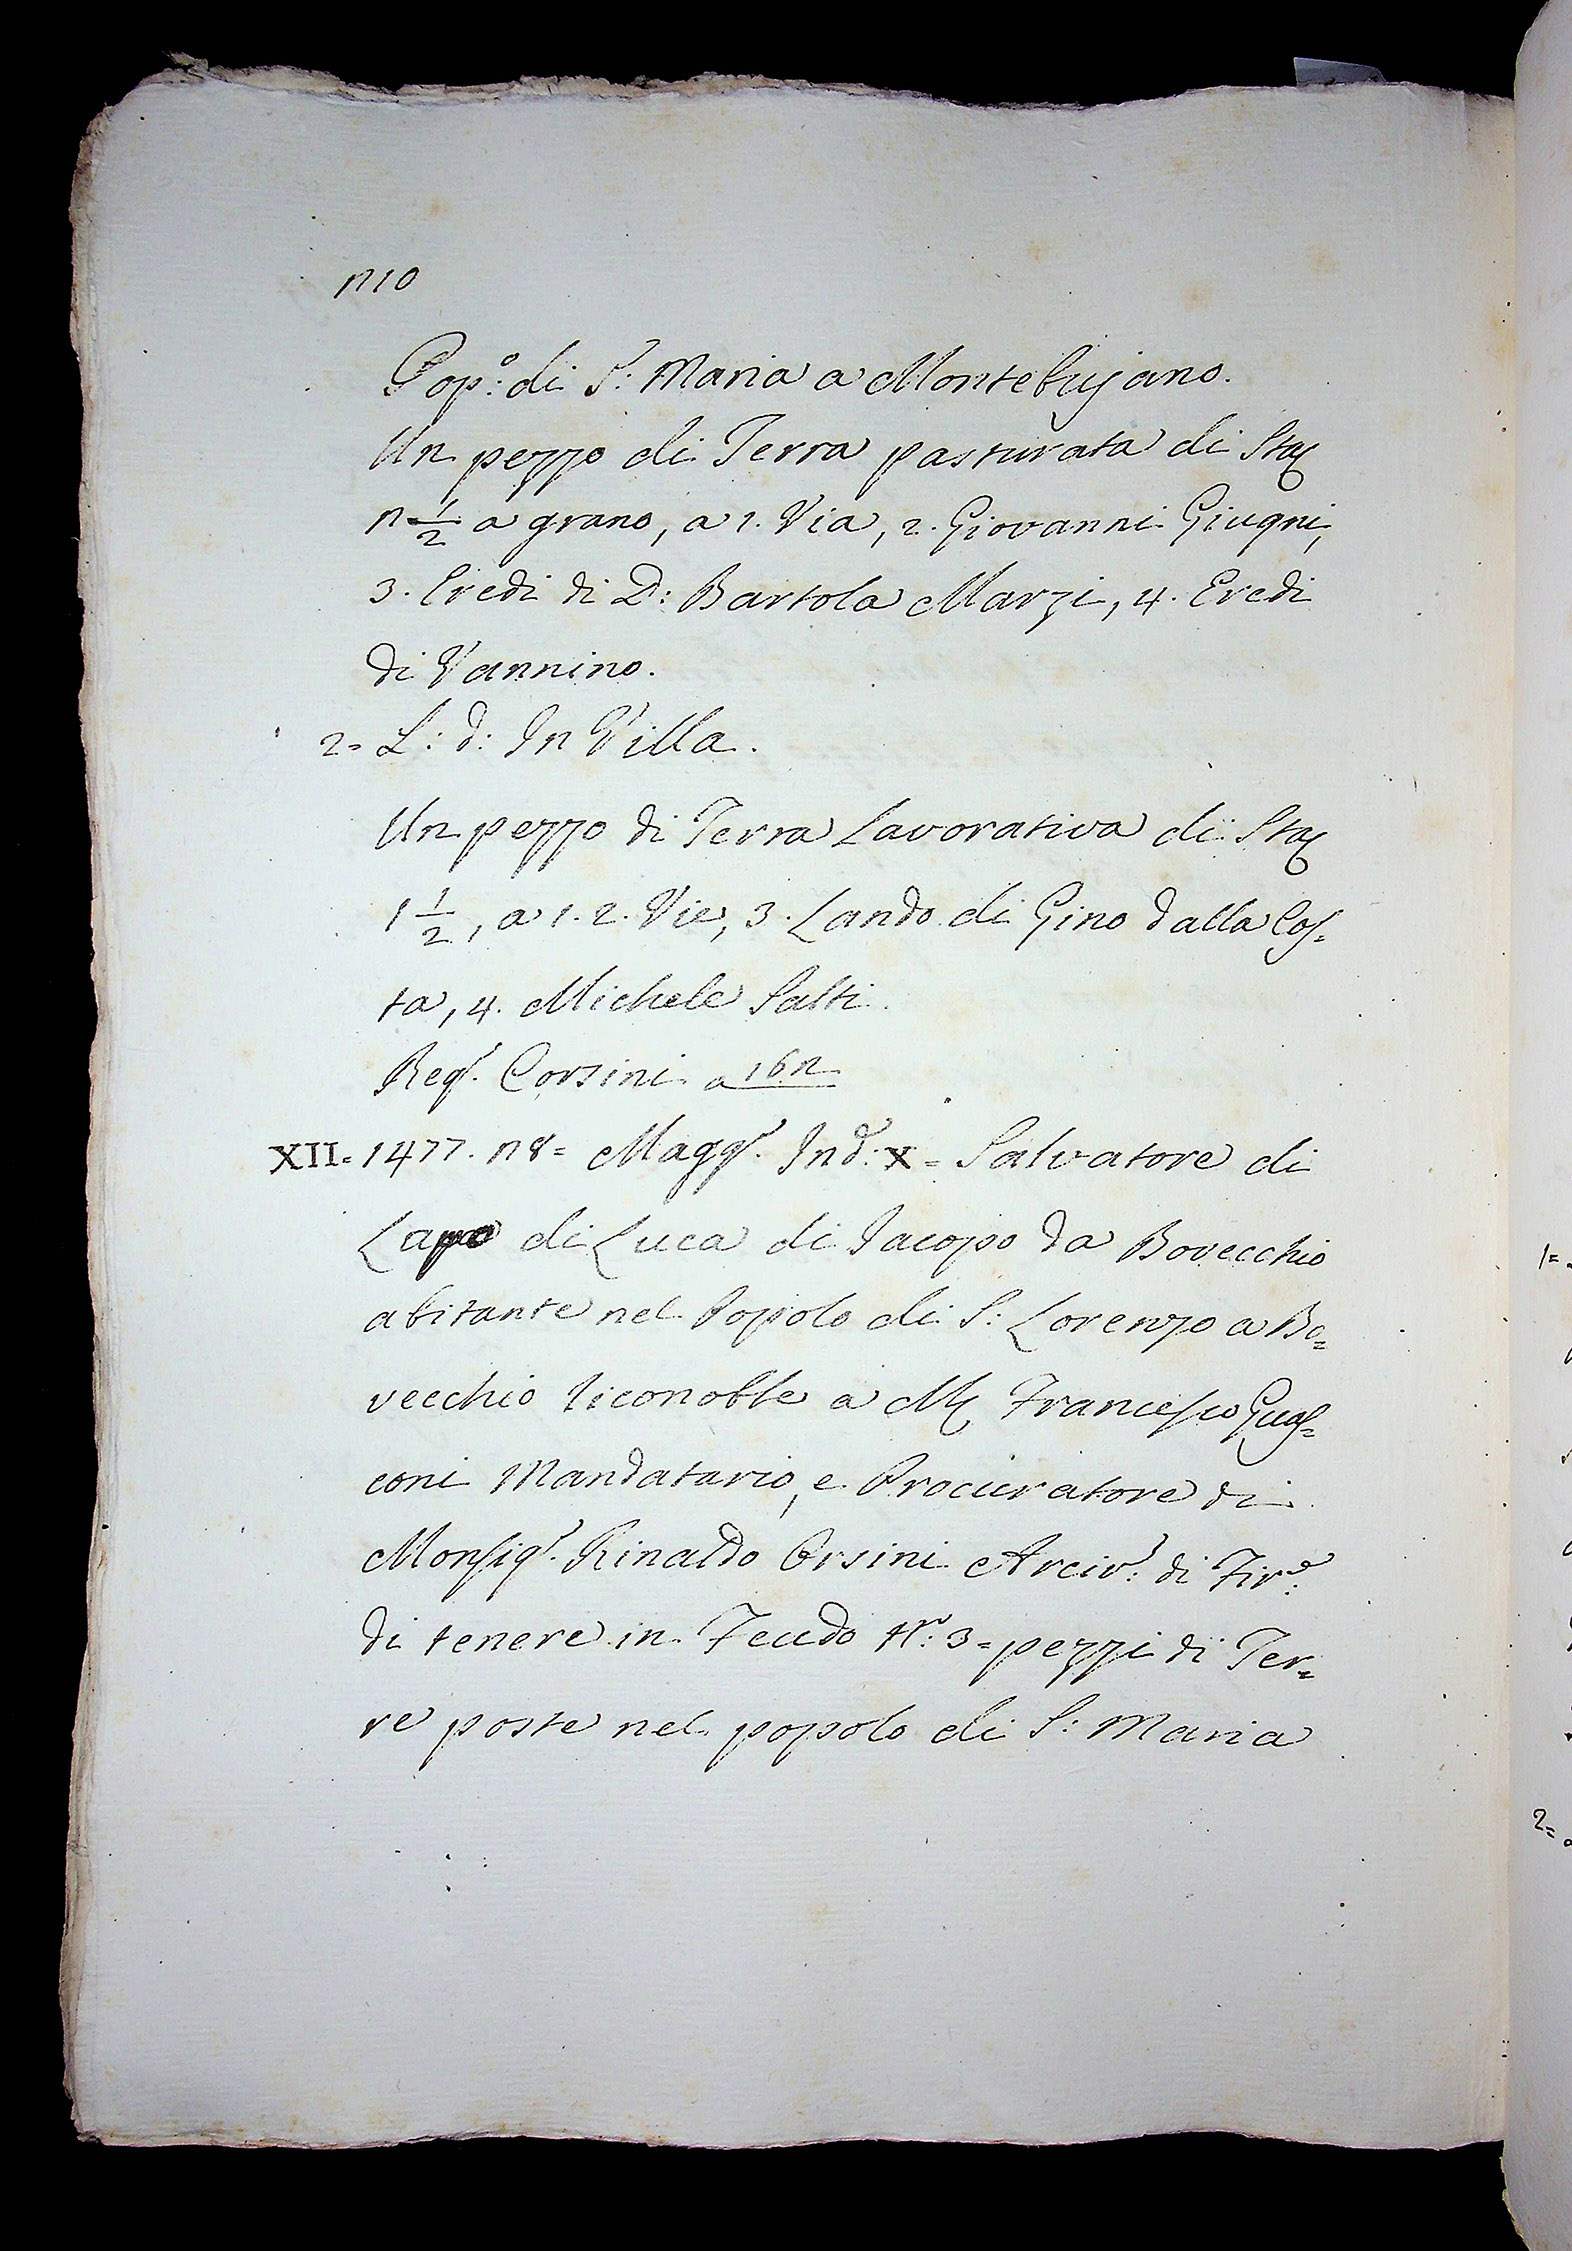 n10
Pop:º di S: Maria a Montebujano.
Un pezzo di Terra pasturata di Sta
n 1/2 a grano, a 1. Via, 2. Giovanni Giugni,
3. Eredi di D: Bartola Marzi, 4. Eredi
di Vannino.
2= L: d: In Villa.
Un pezzo di Terra Lavorativa di Sta
1 1/2, a 1. 2. Vie, 3. Lando di Gino dalla Cos=
ta, 4. Michele Salti
Regr. Corsini a 16n
XII= 1477. n8= Maggr. Ind: X= Salvatore di
Lapo di Luca di Jacopo da Bovecchio
abitante nel Popolo di S: Lorenzo a Bo=
vecchio riconobbe a M Francesco Guas=
coni Mandatario, e Procuratore di
Monsigr. Rinaldo Orsini Arciv: di Fire:
di tenere in Feudo Nº: 3= pezzi di Ter=
re poste nel popolo di S: Maria
1=
2=